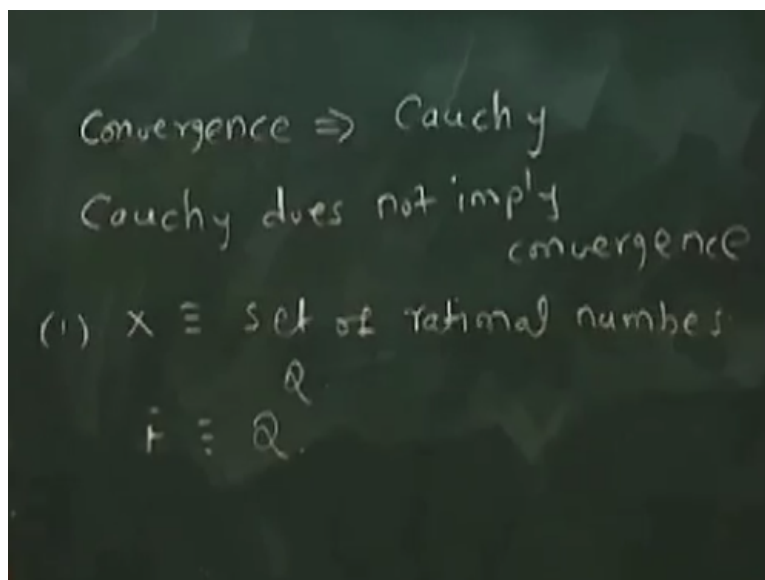 Convergence ⇒ Cauchy
Cauchy does not imply
convergence
(1) X ≡ set of rational numbes
Q
≡ Q.